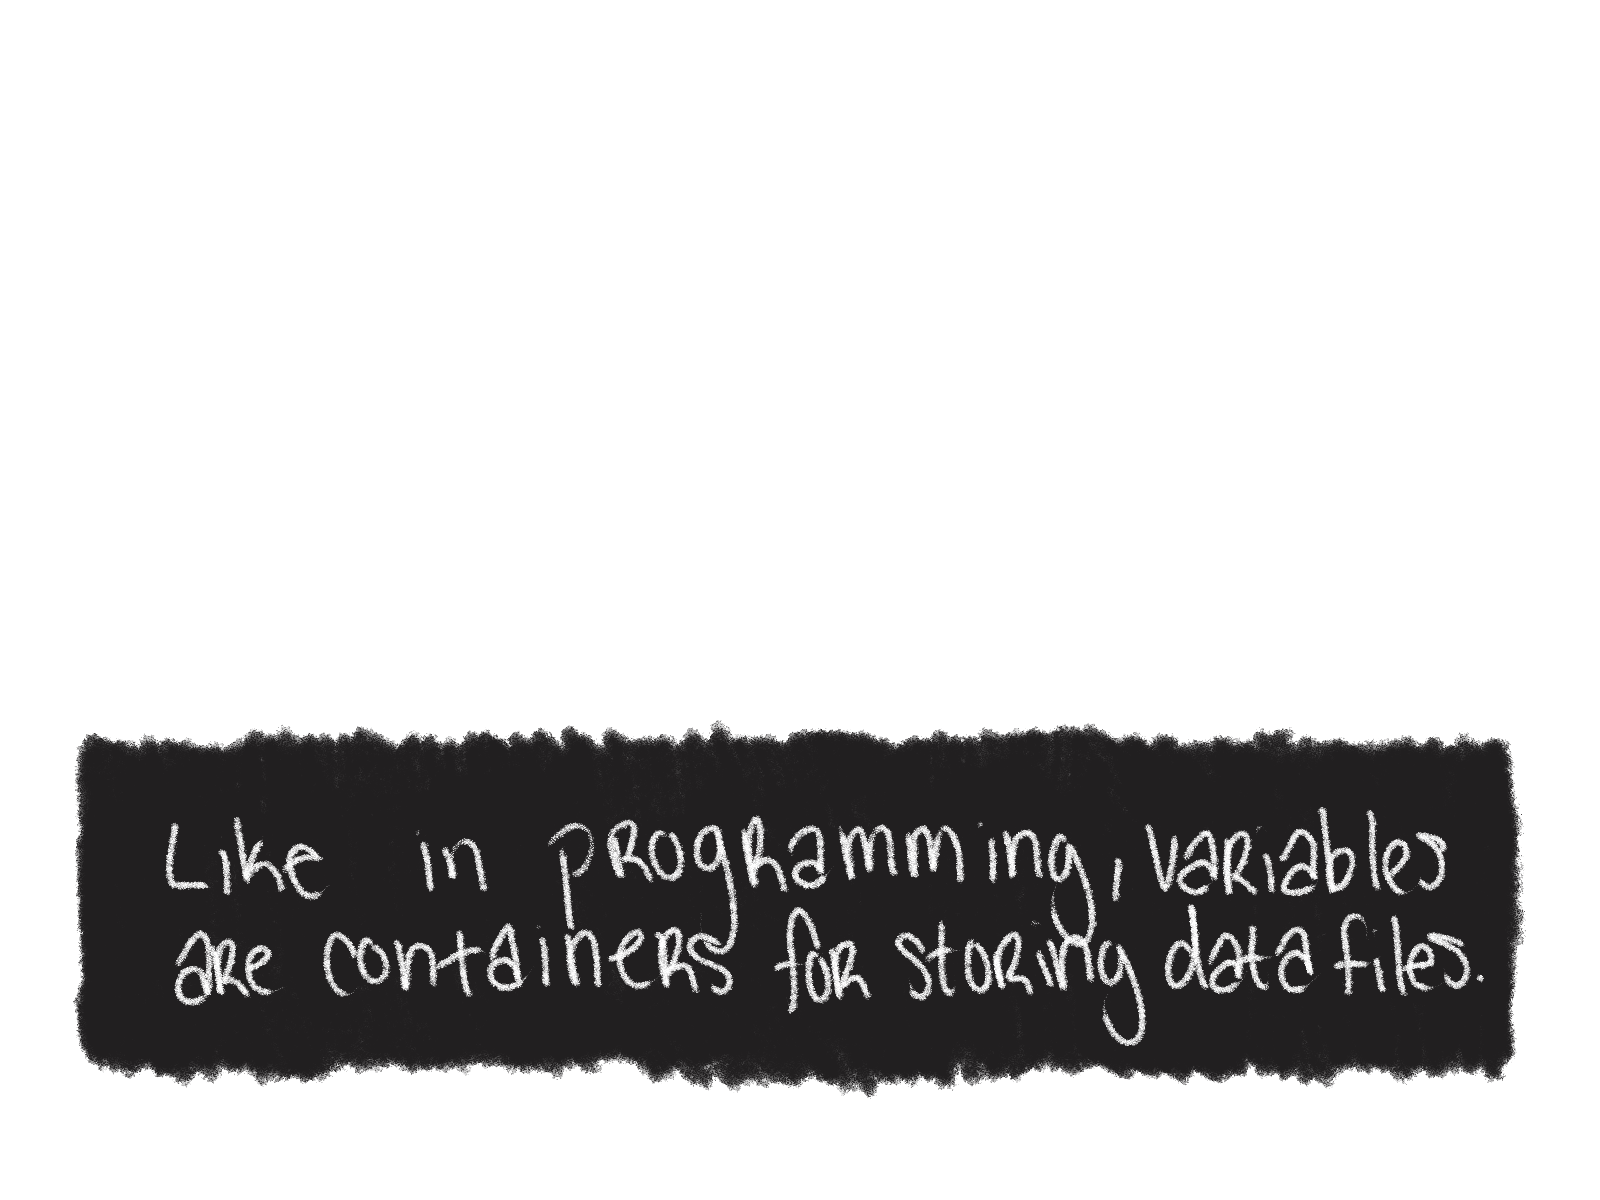 Like in programming, variables
are containers for storing data files.